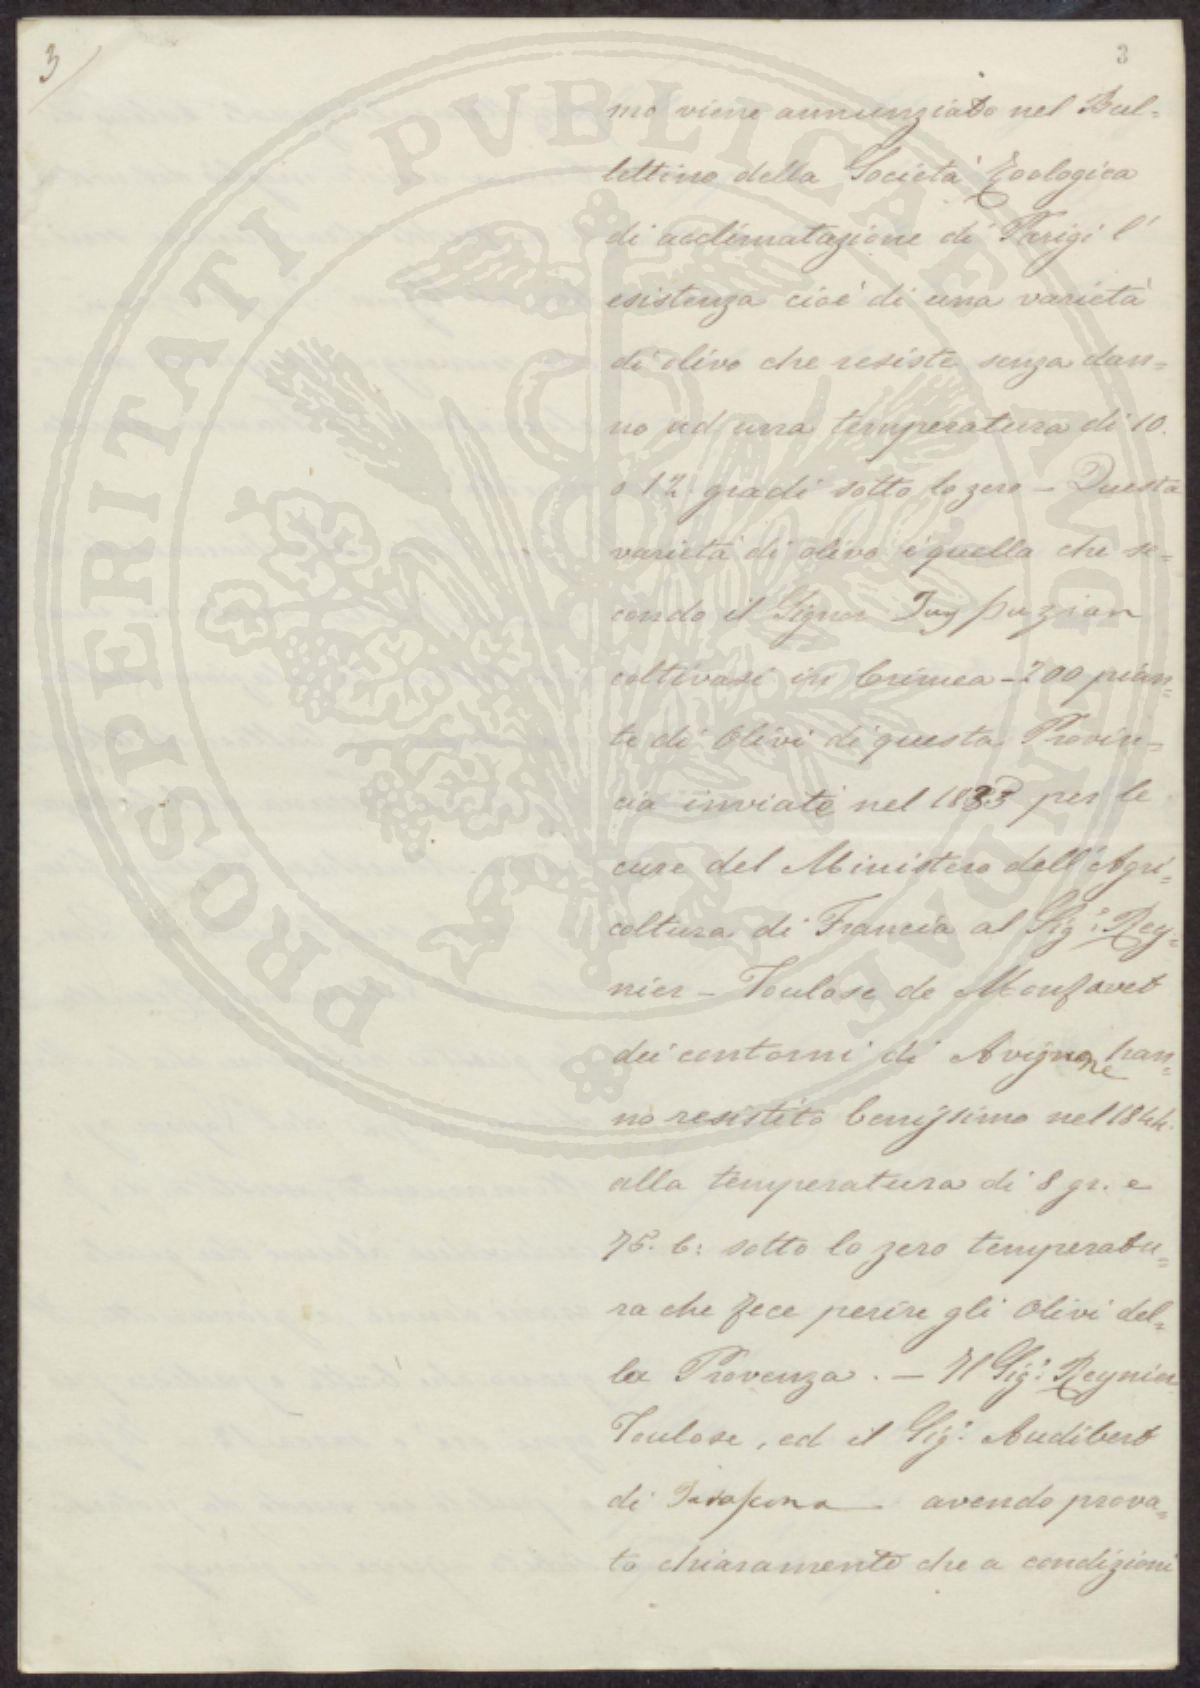 3
3
mo viene annunziato nel Bul=
lettino della Società Zoologica
di acclimatazione di Parigi l'
esistenza cioè di una varietà
di olivo che resiste senza dan=
no ad una temperatura di 10.
o 12. gradi sotto lo zero – Questa
varietà di olivo è quella che se=
condo il Signor
coltivasi in Crimea – 200 pian=
te di Olivi di questa Provin=
cia inviate nel 1833 per le
cure del Ministero dell'Agri=
coltura di Francia al Sig.r Rey=
nier – Toulose de Monfavet
dei contorni di Avignone han=
no resistito benissimo nel 1844.
alla temperatura di 8 gr. e
75. c: sotto lo zero temperatu=
ra che fece perire gli Olivi del=
la Provenza. – Il Sig.r Reynier
Toulose, ed il Sig.r Audibert
di avendo prova=
to chiaramente che a condizioni
PROSPERITATI PVBLICAE AVGENDAE